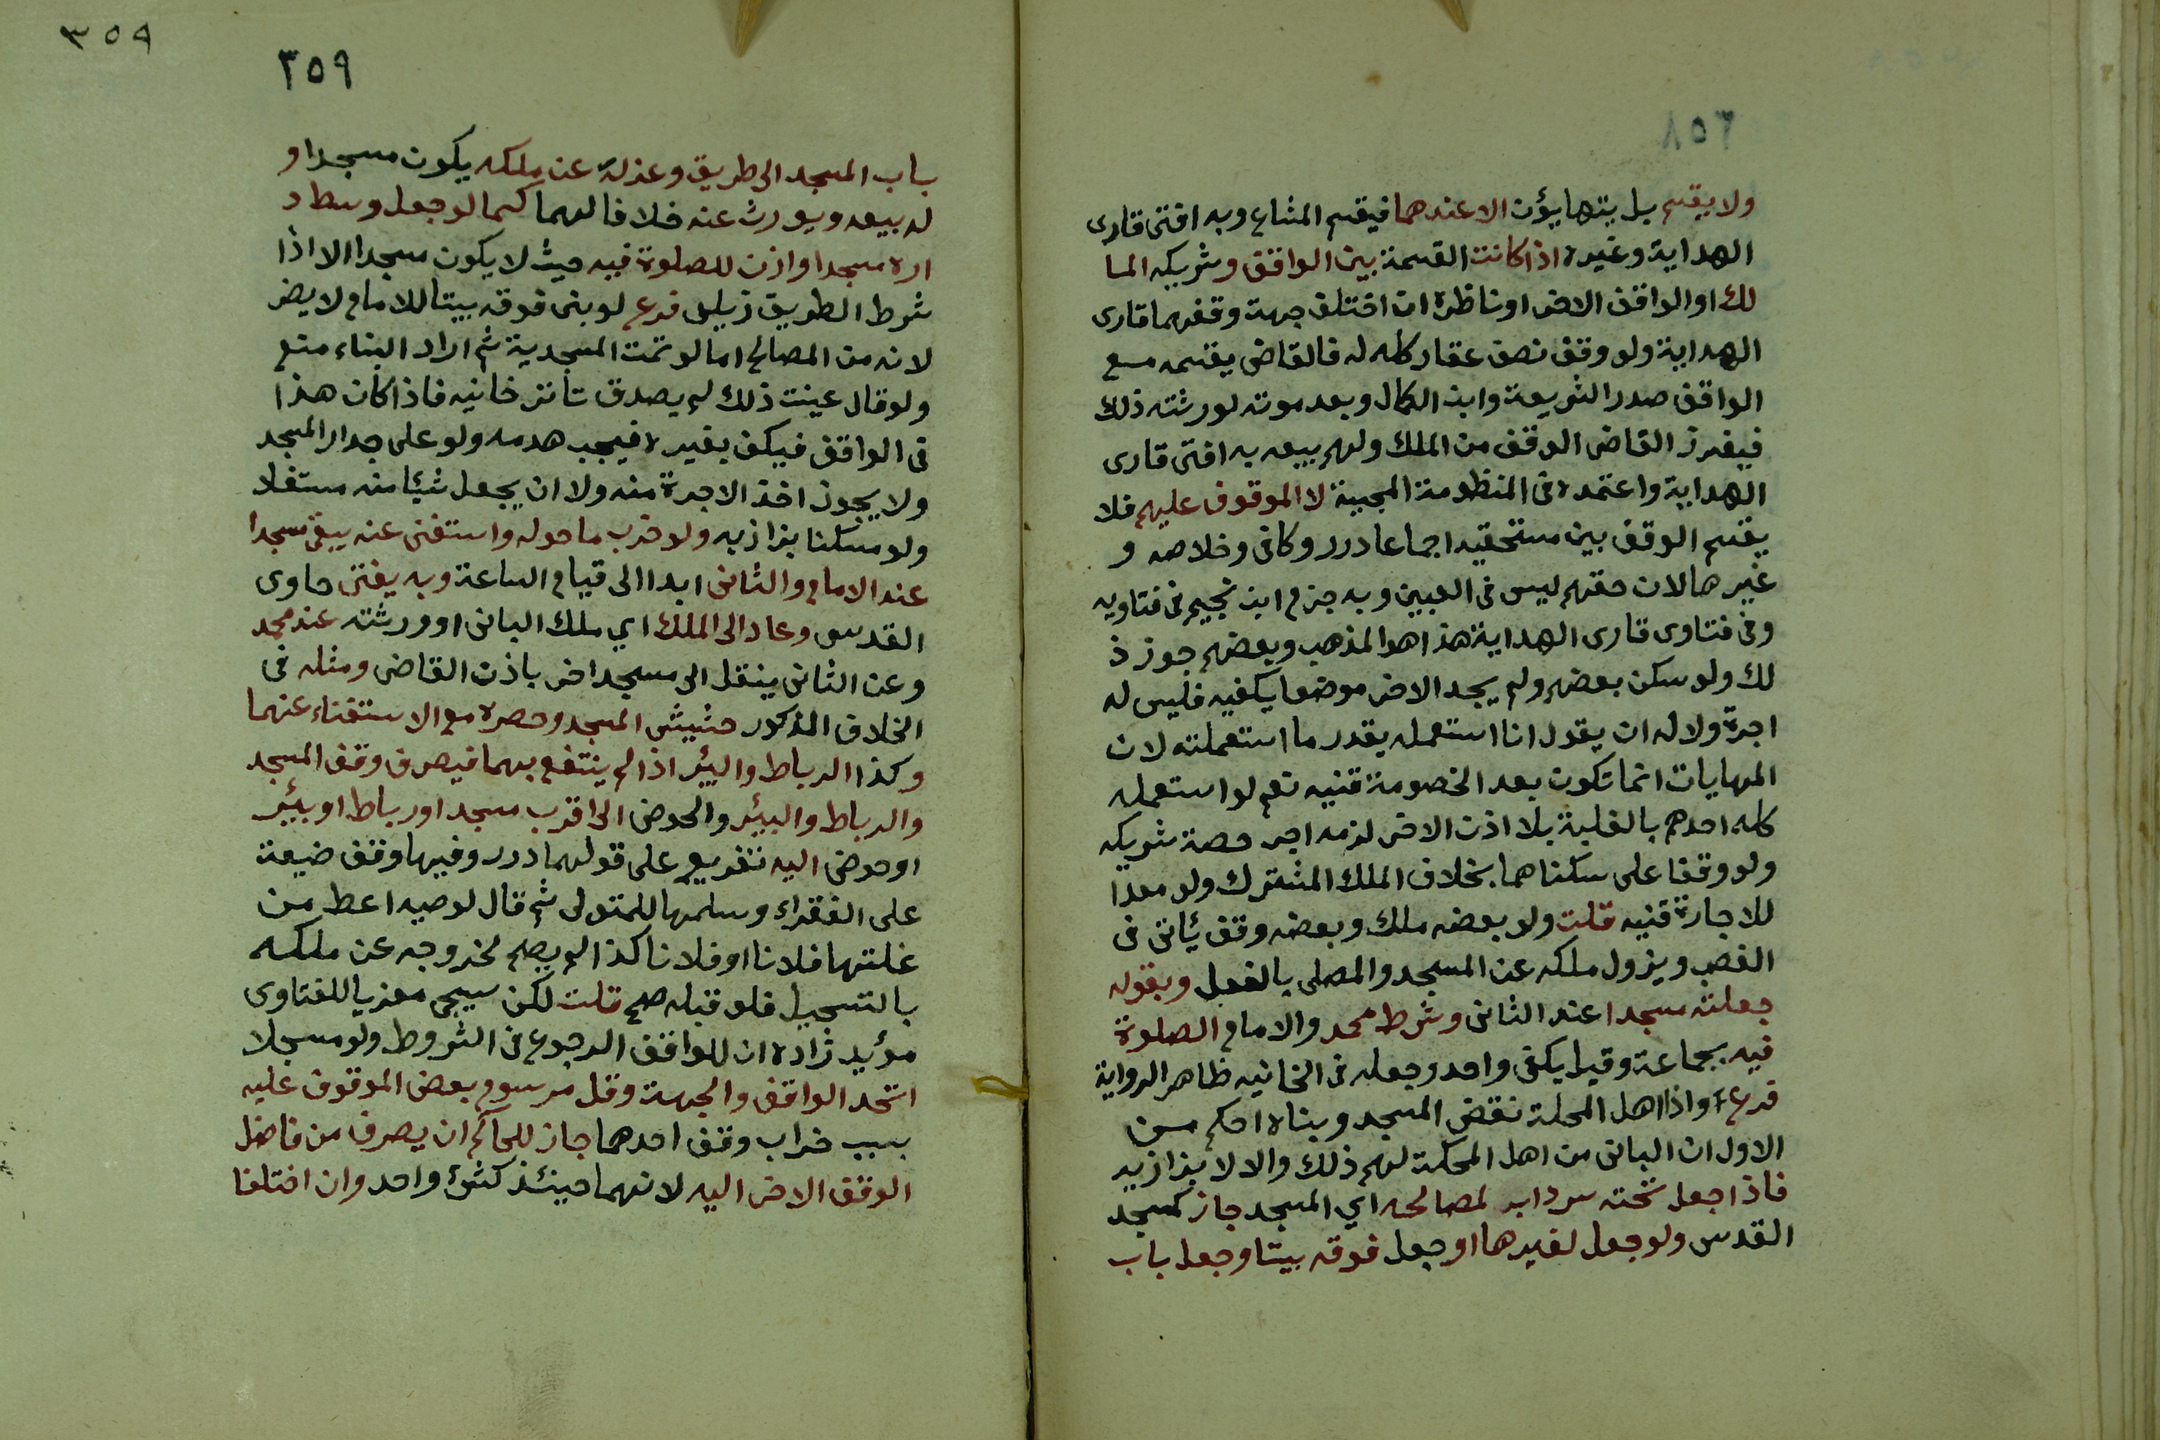 ولا يقسم بل يتهايؤن الا عندهما فيقسم المشاع وبه افتى قارى
الهداية وغيره اذا كانت القسمة بين الواقف وشريكه الما
لك او الواقف الاخر او ناظره ان اختلف جهة وقفهما قارى
الهداية ولو وقف نصف عقار كله له فالقاضى يقسمه مع
الواقف صدر الشريعة وابن الكمال وبعد موته لورثته ذلك
فيفرز القاضى الوقف من الملك ولهم بيعه به افتى قارى
الهداية واعتمده فى المنظومة المحبية لا الموقوف عليهم فلا
يقسم الوقف بين مستحقيه اجماعا درر وكافى وخلاصه و
غيرها لان حقهم ليس فى العين وبه جزم ابن نجيم فى فتاويه
وفى فتاوى قارى الهداية هذا هو المذهب وبعضهم جوز ذ
لك ولو سكن بعضهم ولم يجد الاخر موضعا يكفيه فليس له
اجرة ولا له ان يقول انا استعمله بقدر ما استعملته لان
المهايات انما تكون بعد الخصومة قنيه نعم لو استعمله
كله احدهم بالغلبة بلا اذن الاخر لزمه اجر حصة شريكه
ولو وقفا على سكناهما بخلاف الملك المشترك ولو معدا
للاجارة قنيه قلت ولو بعضه ملك وبعضه وقف يأتى فى
الغصب ويزول ملكه عن المسجد والمصلى بالفعل وبقوله
جعلته مسجدا عند الثانى وشرط محمد والامام الصلوة
فيه بجماعة وقيل يكفى واحد وجعله فى الخانيه ظاهر الرواية
فرع اواذا اهل المحلة نقض المسجد وبناه احكم من
الاول ان البانى من اهل المحكة لهم ذلك والا لا بزازيه
فاذا جعل تحته سردابر لمصالحه اي المسجد جاز كمسجد
القدس ولو جعل لغيرها او جعل فوقه بيتا وجعل باب
٣٥٩
٣٥٩
باب المسجد الى طريق وعزله عن ملكه يكون مسجدا و
له بيعه ويورث عنه خلافا لهما كما لو جعل وسط د
اره مسجدا واذن للصلوة فيه حيث لا يكون مسجدا الا اذا
شرط الطريق زيلعى فرع لو بنى فوقه بيتا للامام لا يضر
لانه من المصالح اما لو تمت المسجدية ثم اراد البناء منع
ولو قال عينت ذلك لم يصدق تاتترخانيه فاذا كان هذا
فى الواقف فيكف بغيره فيجب هدمه ولو على جدار المسجد
ولا يجوز اخذ الاجرة منه ولا ان يجعل شيئا منه مستغلا
ولو مسكنا بزازيه ولو خرب ما حوله واستغنى عنه يبقى مسجدا
عند الامام والثانى ابدا الى قيام الساعة وبه يفتى حاوى
القدسى وعاد الى الملك اي ملك البانى او ورثته عند محمد
وعن الثانى ينقل الى مسجد اخر باذن القاضى ومثله فى
الخلاف المذكور حشيش المسجد وحصره مع الاستغناء عنهما
وكذا الرباط والبئر اذا لم ينتفع بهما فيصرف وقف المسجد
والرباط والبيئر والحوض الى اقرب مسجد او رباط او بيئر
او حوض اليه تفريع على قولهما درر وفيها وقف ضيعة
على الفقراء وسلمها للمتولى ثم قال لوصيه اعط من
غلتها فلانا او فلانا كذا لم يصح لخروجه عن ملكه
بالتسجيل فلو قبله صح قلت لكن سيجى معزيا للفتاوى
مؤيد زاده ان للواقف الرجوع فى الشروط ولو مسجلا
اتحد الواقف والجهة وقل مرسوم بعض الموقوف عليه
بسبب خراب وقف احدهما جاز للحاكم ان يصرف من فاضل
الوقف الاخر اليه لانهما حينئذ كشئ واحد وان اختلفا